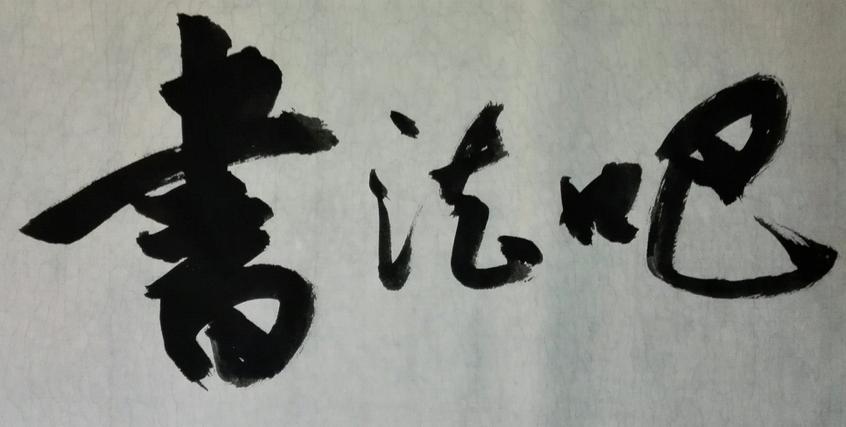 書法吧